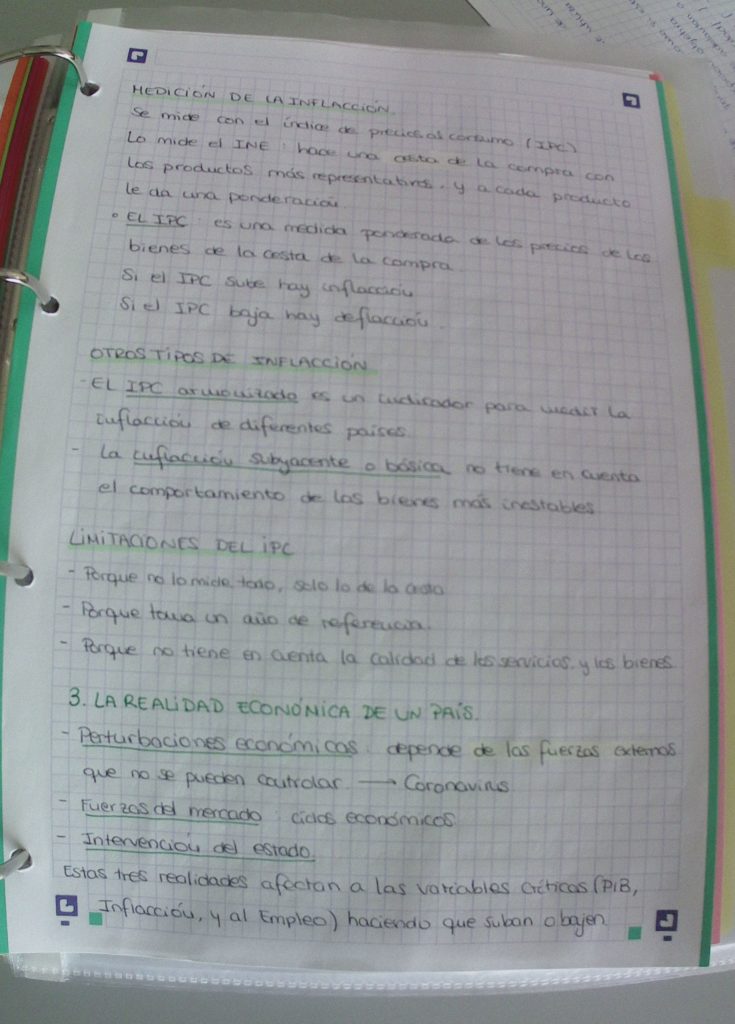 MEDICIÓN DE LA INFLACCIÓN.
Se mide con el índice de precios al consumo (IPC)
Lo mide el INE: hace una cesta de la compra con
los productos más representativos, y a cada producto
le da una ponderación
° EL IPC: es una medida ponderada de los precios de los
bienes de la cesta de la compra
Si el IPC sube hay inflacción
Si el IPC baja hay deflacción.
OTROS TIPOS DE INFLACCIÓN
- EL IPC armonizado es un indicador para medir la
inflacción de diferentes paises.
- La inflacción subyacente o básica no tiene en cuenta
el comportamiento de los bienes más inestables
LIMITACIONES DEL IPC
- Porque no lo mide todo, solo lo de la cesta
- Porque toma un año de referencia.
- Porque no tiene en cuenta la calidad de los servicios y los bienes
3. LA REALIDAD ECONÓMICA DE UN PAÍS.
- Perturbaciones económicas: depende de las fuerzas externas
que no se pueden controlar → Coronavirus
- Fuerzas del mercado: ciclos económicos
- Intervención del estado.
Estas tres realidades afectan a las variables críticas (PIB,
Inflacción, y al Empleo) haciendo que suban o bajen